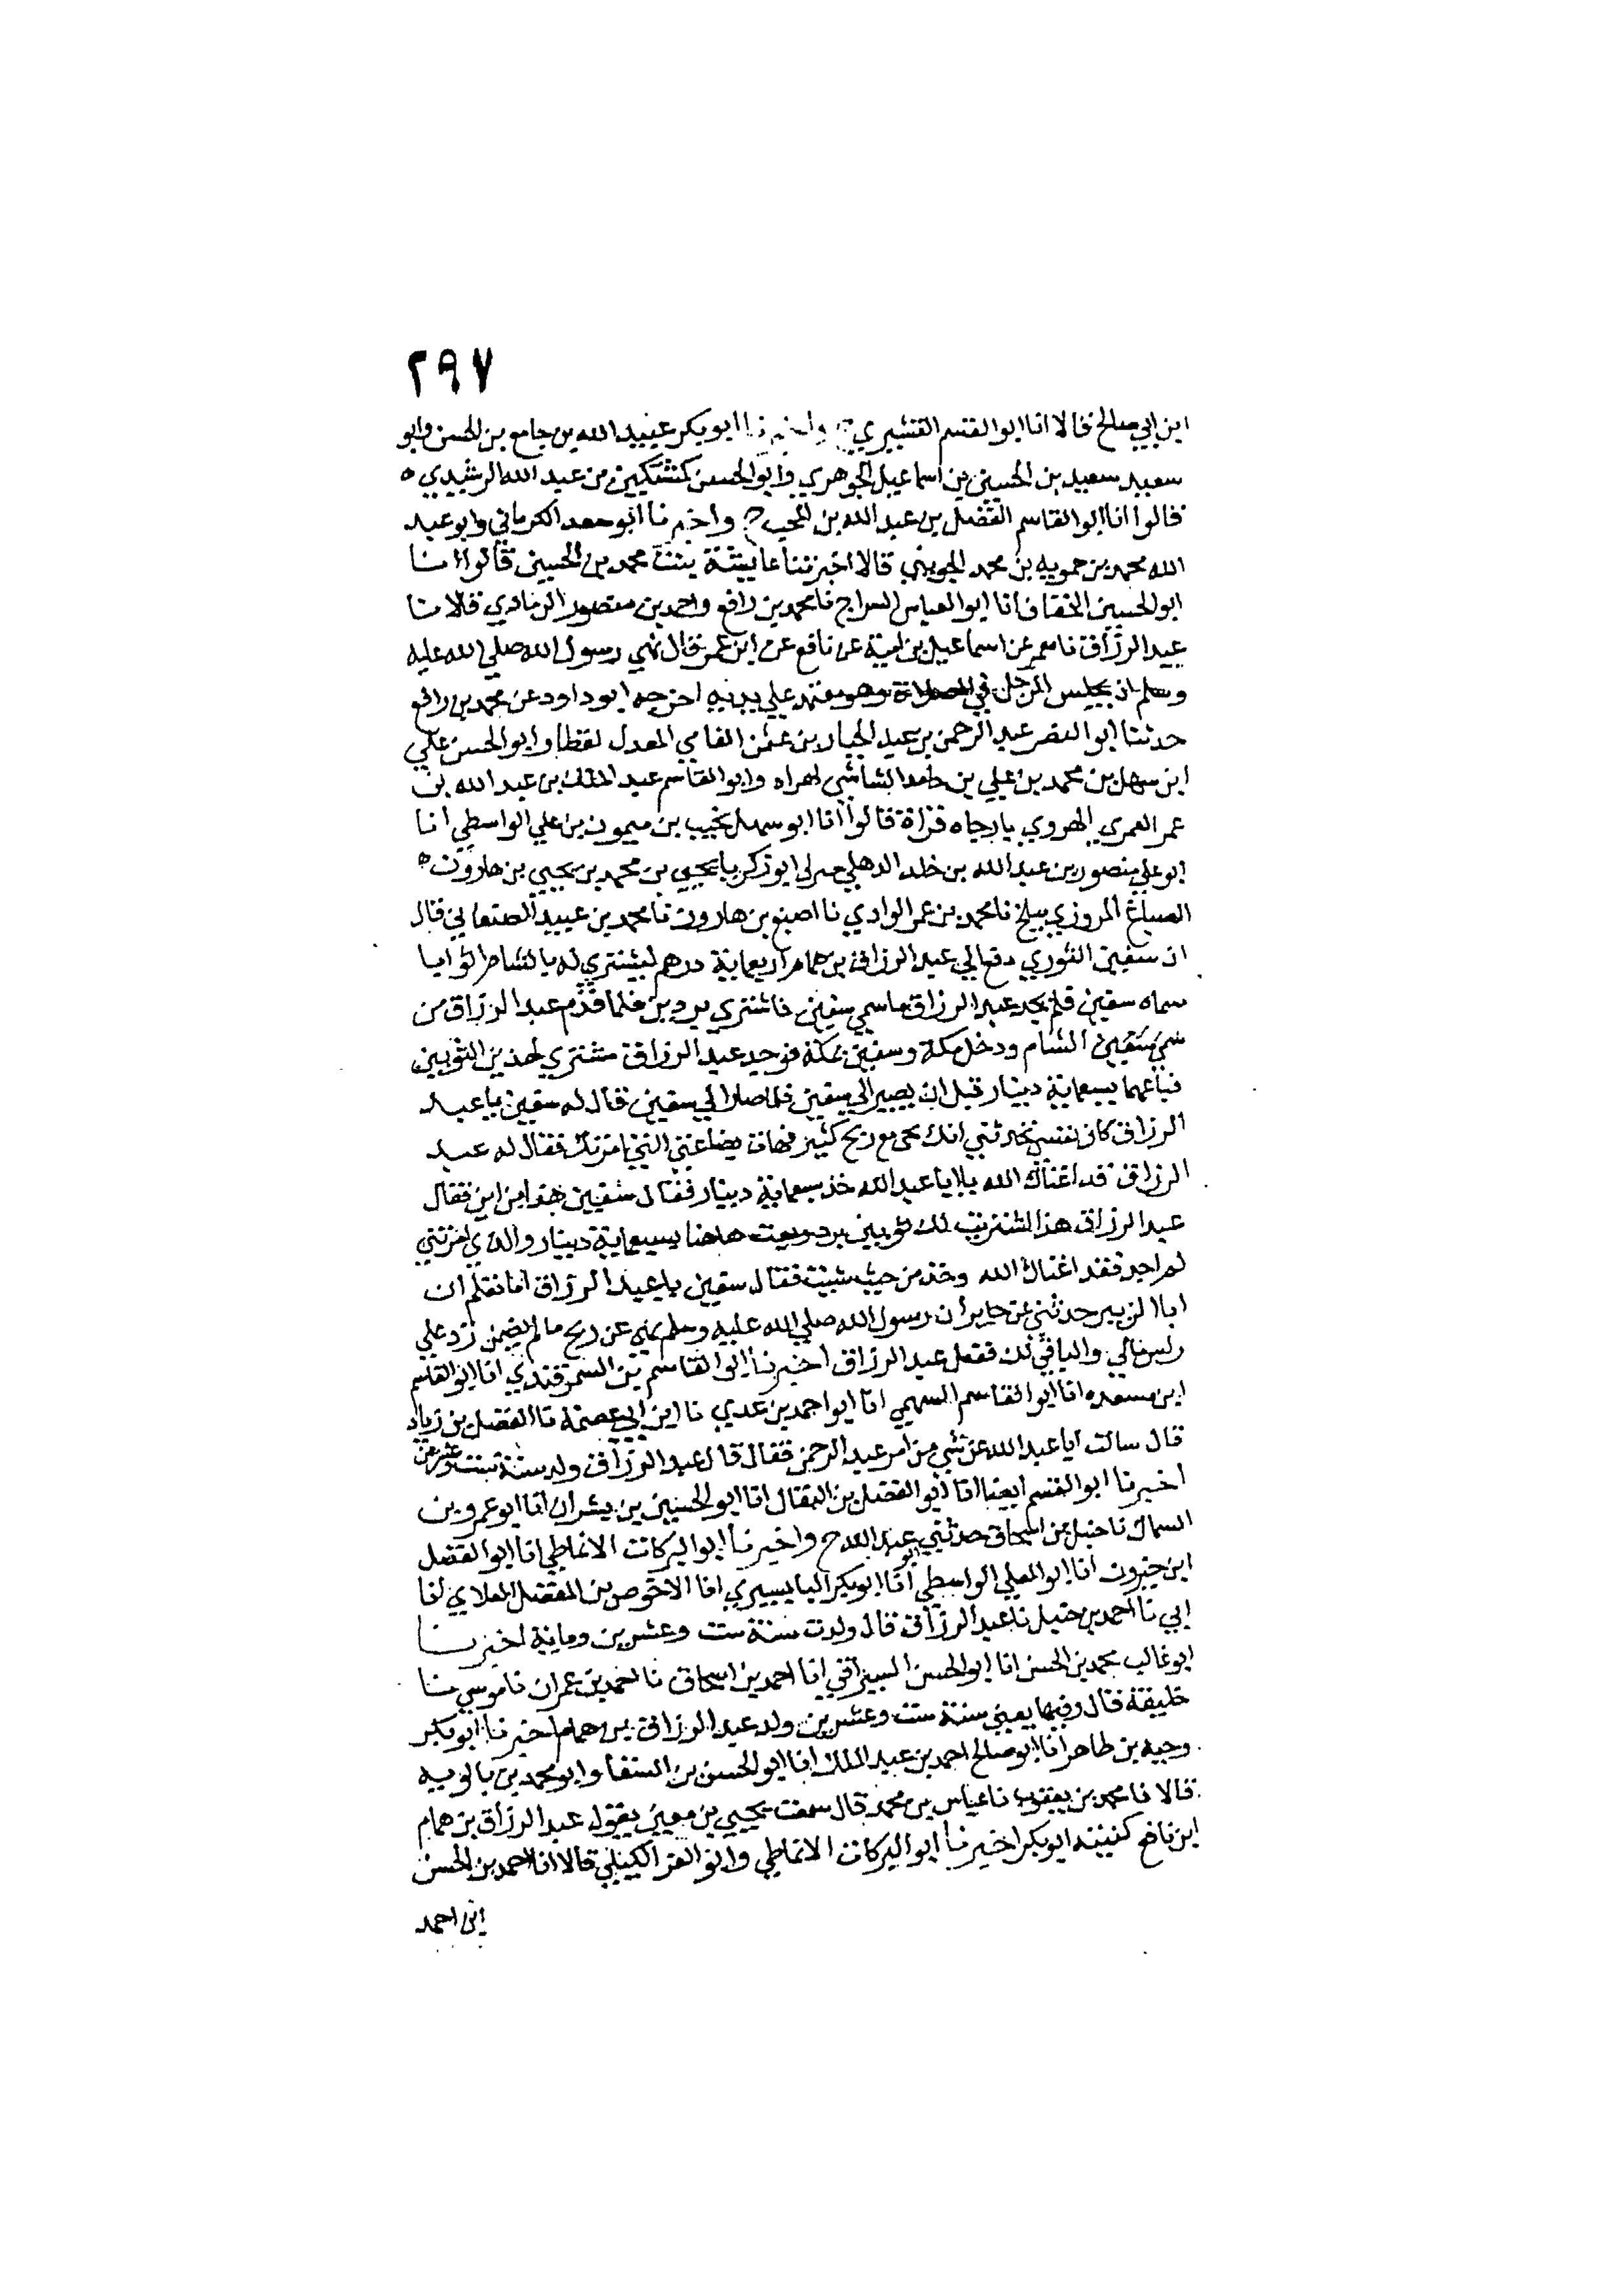 ٢٩٧
ابن ابي صالح قالا انا ابو القسم القشيري ح واخبرنا ابو بكر عبيد الله بن جامع بن الحسن وابو
سعيد سعيد بن الحسين بن اسماعيل الجوهري وابو الحسن كمشتكين بن عبد الله الرشيدي ه
قالوا انا ابو القاسم الفضل بن عبد الله بن المحب ح واخبرنا ابو سعد الكرماني وابو عبد
الله محمد بن حمويه بن محمد الجويني قالا اخبرتنا عايشة بنت محمد بن الحسين قالوا انا
ابو الحسين الخفاف انا ابو العباس السراج نا محمد بن رافع واحمد بن منصور الرمادي قالا نا
عبد الرزاق نا معمر عن اسماعيل بن امية عن نافع عن ابن عمر قال نهي رسول الله صلي الله عليه
وسلم ان يجلس الرجل في الصلاة وهو معتمد علي يديه اخرجه ابو داود عن محمد بن رافع
حدثنا ابو النضر عبد الرحمن بن عبد الجبار بن عثمن الفامي المعدل لفظا وابو الحسن علي
ابن سهل بن محمد بن علي بن حامد الشاشي بهراه وابو القاسم عبد الملك بن عبد الله بن
عمر العمري الهروي بارجاه قراة قالوا انا ابو سهل نجيب بن ميمون بن علي الواسطي انا
ابو علي منصور بن عبد الله بن خلد الذهلي ابو زكريا يحيي بن محمد بن يحيي بن هارون ه
الصباغ المروزي ببلخ نا محمد بن عمر الوادي نا اصبغ بن هارون نا محمد بن عبيد الصنعاني قال
ان سفين الثوري دفع الي عبد الرزاق بن همام اربعماية درهم ليشتري له بالشام ثوابا
سماه سفين فلم يجد عبد الرزاق ما سمي سفين فاشتري بردين فلما قدم عبد الرزاق من
الشام ودخل مكة وسفين بمكة فوجد عبد الرزاق مشتري لهذين الثوبين
فباعهما بسبعماية دينار قبل ان يصير الي سفين فلما صار الي سفين قال له سفين يا عبد
الرزاق كان نفسي تحدثني انك تجي مع ربح كثير فهات بضاعتي التي امرتك فقال له عبد
الرزاق قد اغناك الله يابا عبد الله خذ سبعماية دينار فقال سفين هذا من اين فقال
عبد الرزاق هذا اشتريت لك ثوبين برد وبعت هاهنا بسبعماية دينار والذي امرتني
لم اجد فقد اغناك الله وخذ من حيث شيت فقال سفين يا عبد الرزاق اما تعلم ان
ابا الزبير حدثني عن جابر أن رسول الله صلي الله عليه وسلم نهي عن ربح ما لم يضمن رد علي
راس مالي والباقي لك ففعل عبد الرزاق اخبرنا ابو القاسم بن السمرقندي انا ابو القاسم
ابن مسعده انا ابو القاسم السهمي انا ابو احمد بن عدي نا ابن ابي عصمة نا الفضل بن زياد
قال سالت ابا عبد الله عن شي من امر عبد الرحمن فقال قال عبد الرزاق ولد سنة ست وعشرين
اخبرنا ابو القسم ايضا انا ابو الفضل بن البقال انا ابو الحسين بن بشران انا ابو عمرو بن
السماك نا حنبل بن اسحاق حدثني ابو عبد الله ح واخبرنا ابو البركات الانماطي انا ابو الفضل
ابن خيرون انا ابو العلي الواسطي انا ابو بكر البابسيري انا الاحوص بن المفضل الغلابي نا
ابي نا احمد بن حنبل نا عبد الرزاق قال ولدت سنة ست وعشرين وماية اخبرنا
ابو غالب محمد بن الحسن انا ابو الحسن السيرافي انا احمد بن اسحاق نا احمد بن عمران نا موسي نا
خليفة قال وفيها يعني سنة ست وعشرين ولد عبد الرزاق بن همام اخبرنا ابو بكر
وجيه بن طاهر انا ابو صالح احمد بن عبد الملك انا ابو الحسن بن السقا وابو محمد بن بالويه
قالا نا محمد بن يعقوب نا عباس بن محمد قال سمعت يحيي بن معين يقول عبد الرزاق بن همام
ابن نافع كنيته ابو بكر اخبرنا ابو البركات الانماطي وابو العز الكيلي قالا انا احمد بن الحسن
ابن احمد